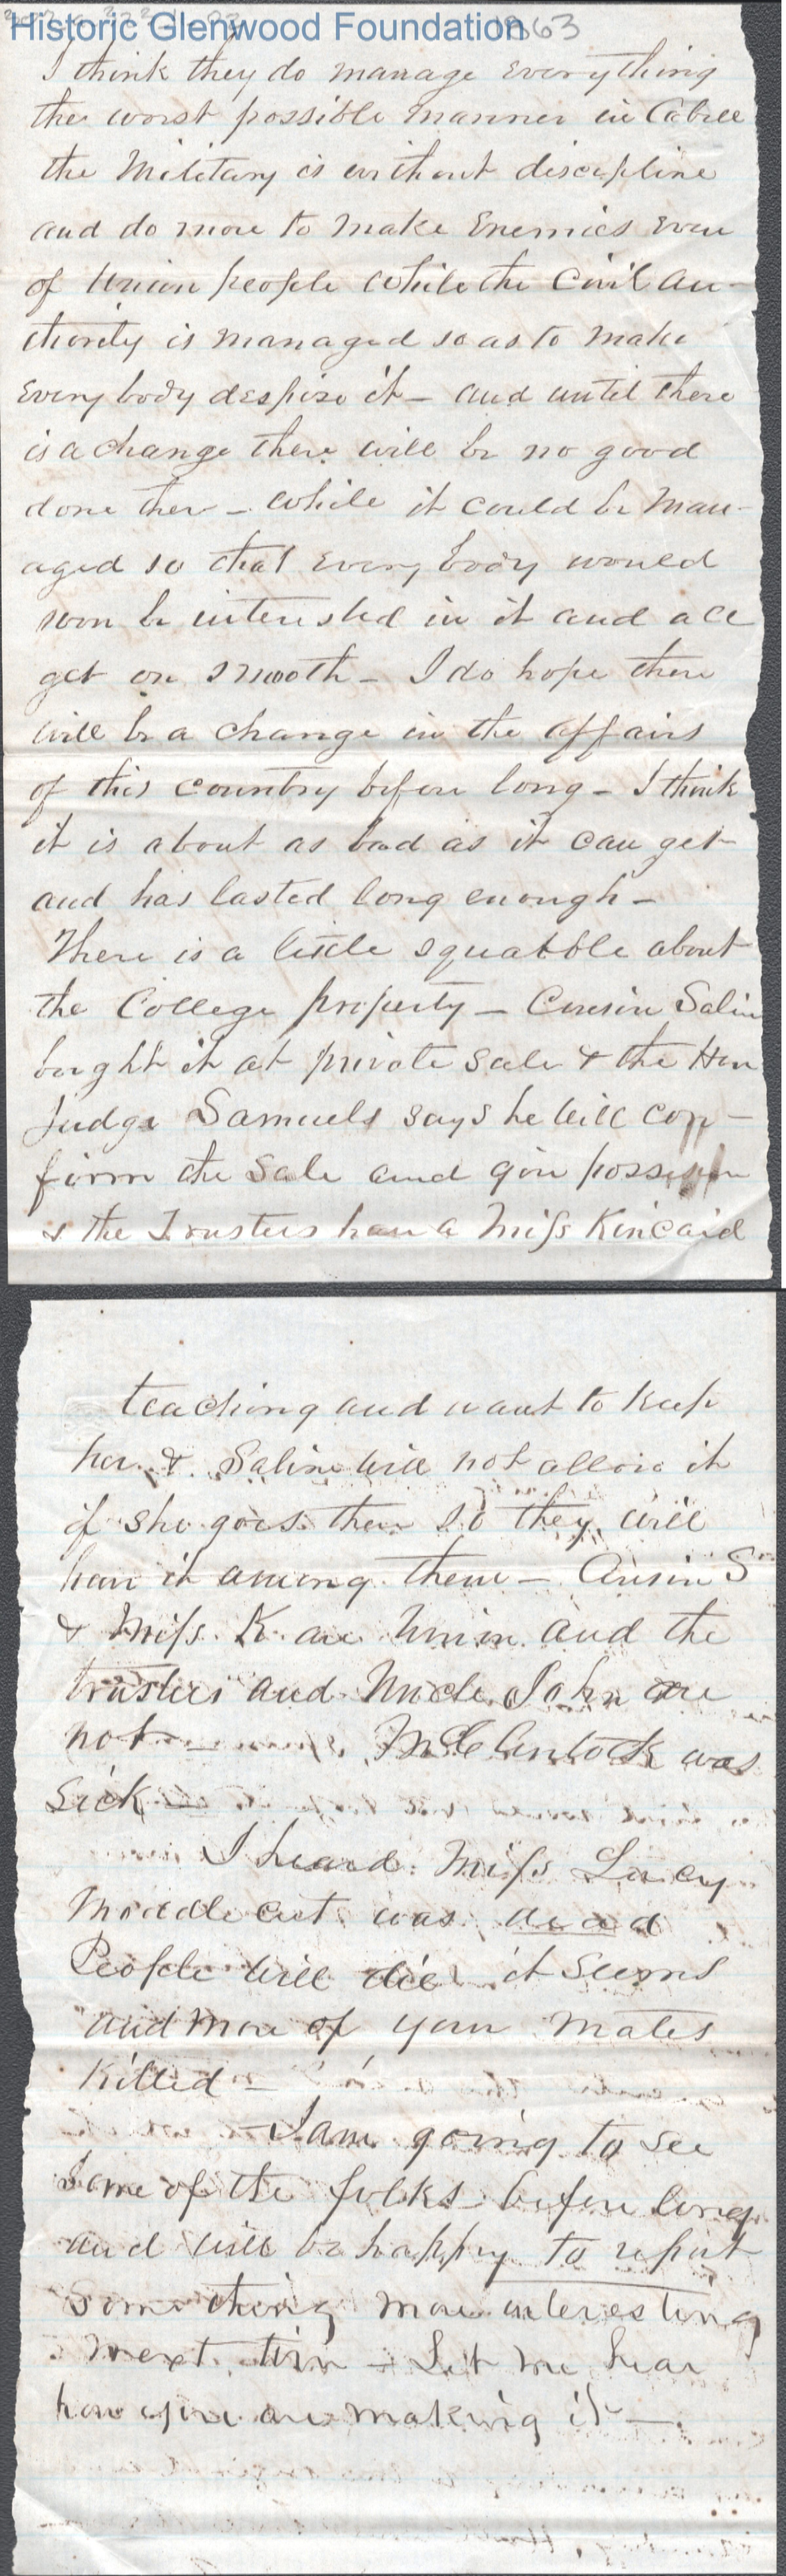 Historic Glenwood Foundation
1863
I think they do manage everything
the worst possible manner in Cabell
the Military is without discipline
and do more to make Enemies even
of Union people while the Civil au-
thority is managed so as to make
every body despise it - and until there
is a change there will be no good
done ther - while it could be man-
aged so that every body would
soon be interested in it and all
get on smooth - I do hope there
will be a change in the affairs
of this country before long - I think
it is about as bad as it can get
and has lasted long enough -
There is a little squabble about
the College property - Cousin Salin
bought it at private sale & the Hon
Judge Samuels says he will con-
firm the Sale and give possession
& the Trustees have a Miss Kincaid
teaching and want to keep
her & Saline will not allow it
if she goes there so they will
have it among them - Cousin S
& Miss K are Union and the
trustees and Uncle John are
not - McClintock was
sick -
I heard Miss Lucy
Middlecut was dead
People will die it seems
and more of your mates
killed -
- I am going to see
some of the folks before long
and will be happy to report
something more interesting
next time - Let me hear
how you are making it -